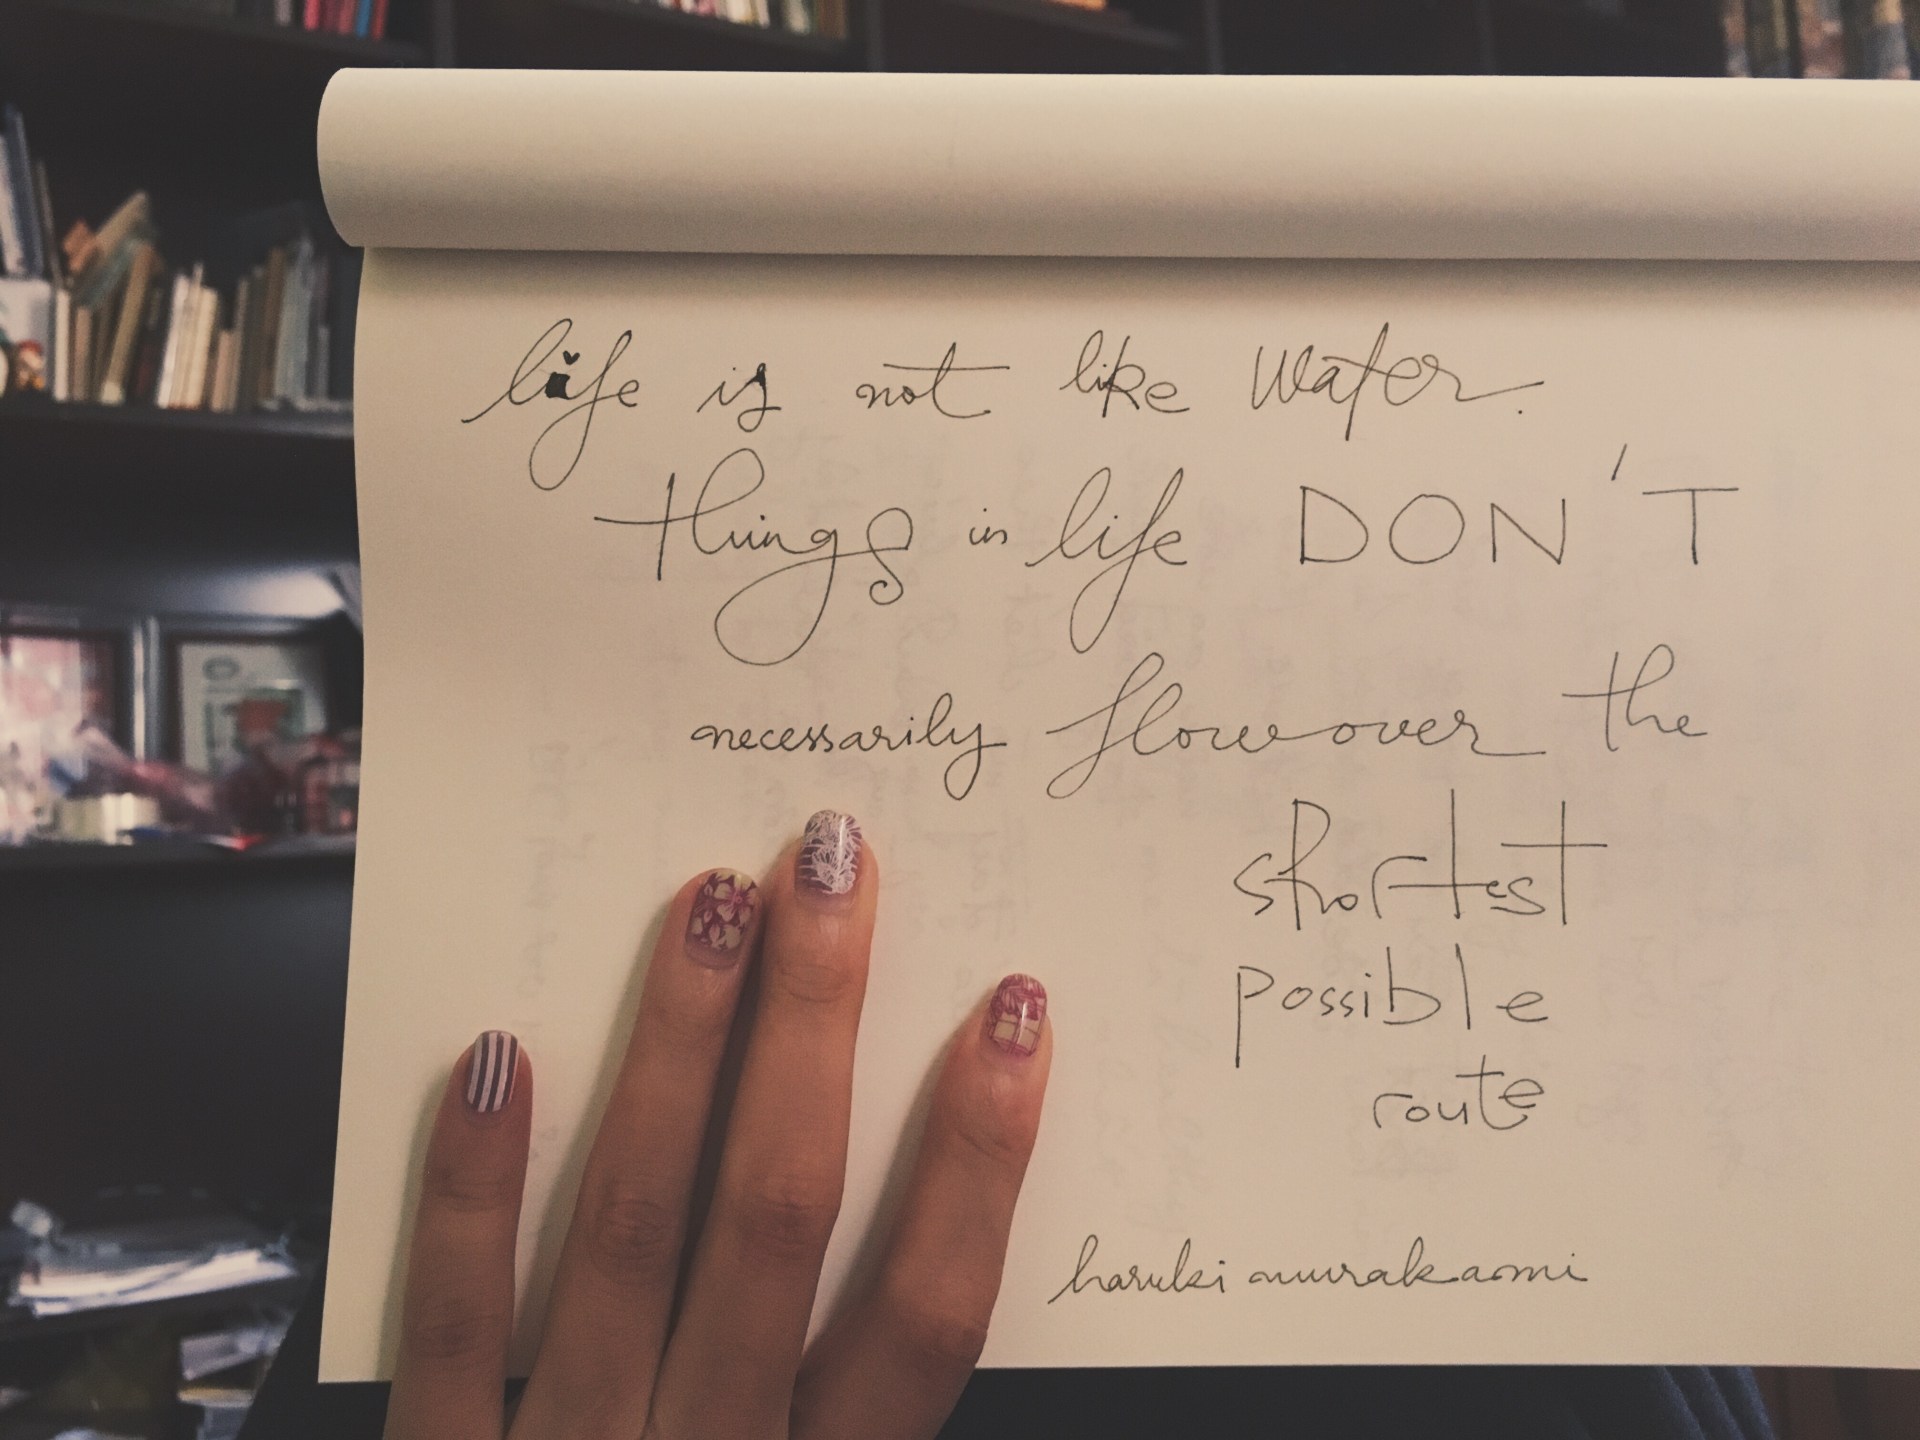 life is not like water.
things in life DON'T
necessarily flow over the
shortest
possible
route
haruki murakami